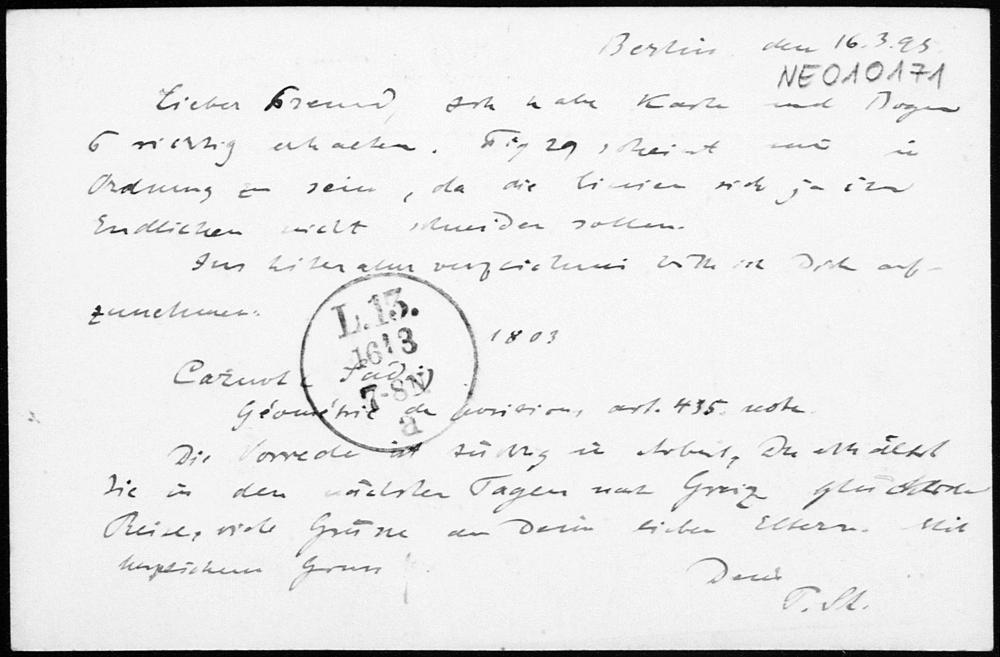 Berlin den 16.3.95.
NE010171
Lieber Freund, ich habe Karte und Bogen
6 richtig erhalten. Fig 29 scheint mir in
Ordnung zu sein, da die Linien sich ja im
Endlichen nicht schneiden sollen.
Ins Literaturverzeichnis bitte ich Dich auf-
zunehmen.
L.13.
16/3
7-8N
a
1803
Carnot,
Géométrie de position, art. 435. note.
Die Vorrede ist tüchtig in Arbeit, Du erhältst
sie in den nächsten Tagen nach Greiz glückliche
Reise, viele Grüsse an Deine lieben Eltern. Mit
herzlichem Gruss
Dein
P. St.